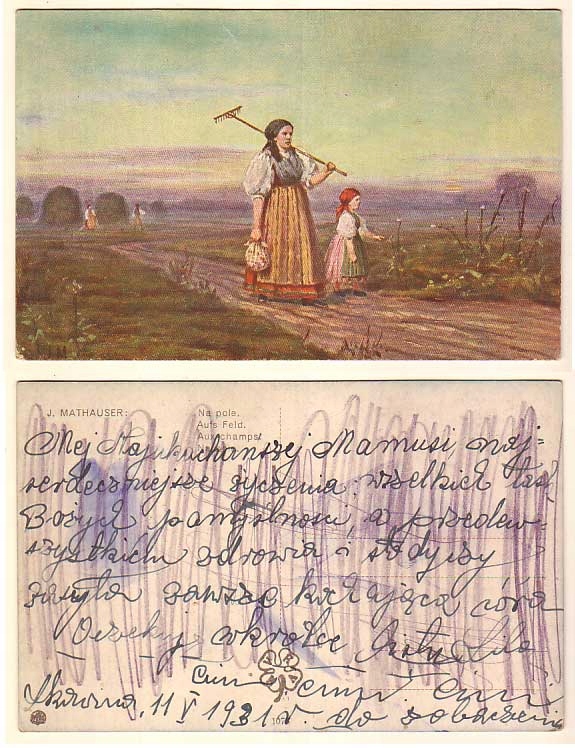 J. MATHAUSER:
Na pole.
Aufs Feld.
Aux champs!
Mej Najukochańszej Mamusi, naj-
serdeczniejsze życzenia wszelkich łask
Bożych pomyślności, a przedew-
szystkiem zdrowia i słodyczy
zasyła zawsze kochająca córa
wkrótce
Skawina, 11 V 1931 r. do zobaczenia